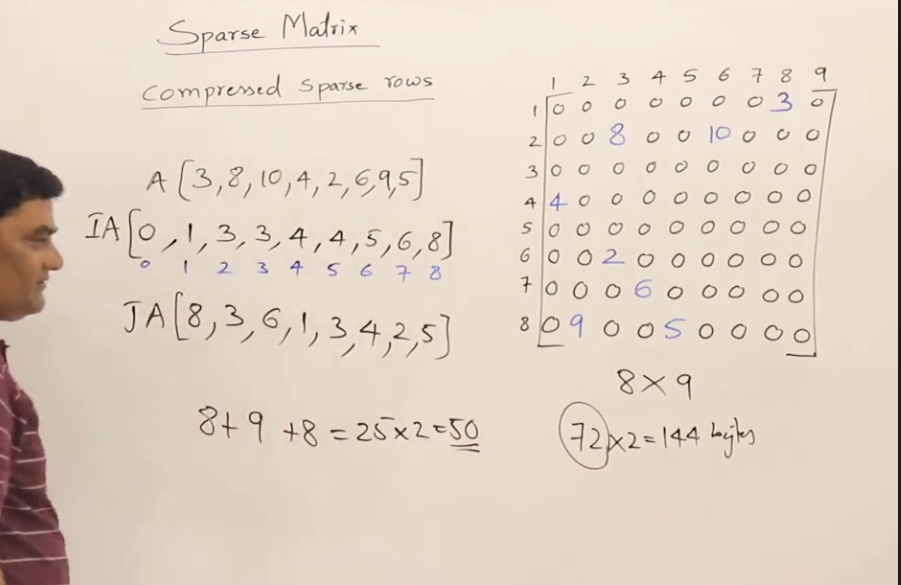 Sparse Matrix
Compressed Sparse rows
A [3,8,10,4,2,6,9,5]
IA [0,1,3,3,4,4,5,6,8]
0 1 2 3 4 5 6 7 8
JA [8,3,6,1,3,4,2,5]
8+9+8=25×2=50
1 2 3 4 5 6 7 8 9
1 0 0 0 0 0 0 0 3 0
2 0 0 8 0 0 10 0 0 0
3 0 0 0 0 0 0 0 0 0
4 4 0 0 0 0 0 0 0 0
5 0 0 0 0 0 0 0 0 0
6 0 0 2 0 0 0 0 0 0
7 0 0 0 6 0 0 0 0 0
8 0 9 0 0 5 0 0 0 0
8×9
72×2=144 bytes